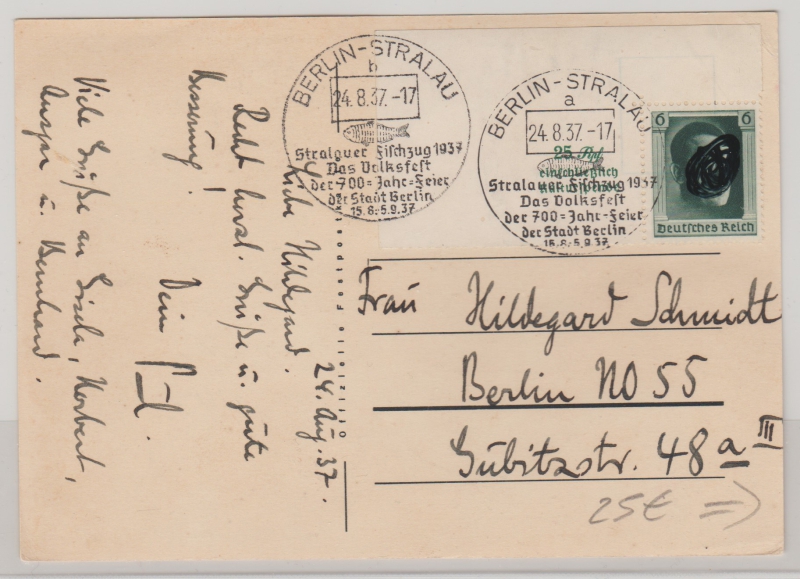 24. Aug. 37.
Liebe Hildegard.
Recht herzl. Grüße u. gute
Besserung!
Dein
Viele Grüße an Gisela, Norbert,
Ansgar u. Bernhard.
BERLIN-STRALAU
b
24.8.37.-17
Stralauer Fischzug 1937
Das Volksfest
der 700=Jahr=Feier
der Stadt Berlin
15.8.-5.9.37
BERLIN-STRALAU
a
24.8.37.-17
Stralauer Fischzug 1937
Das Volksfest
der 700=Jahr=Feier
der Stadt Berlin
15.8.-5.9.37
25 Rpf.
einschließlich
6 6
Deutsches Reich
Frau Hildegard Schmidt
Berlin NO 55
Gubitzstr. 48a III
25€ =>